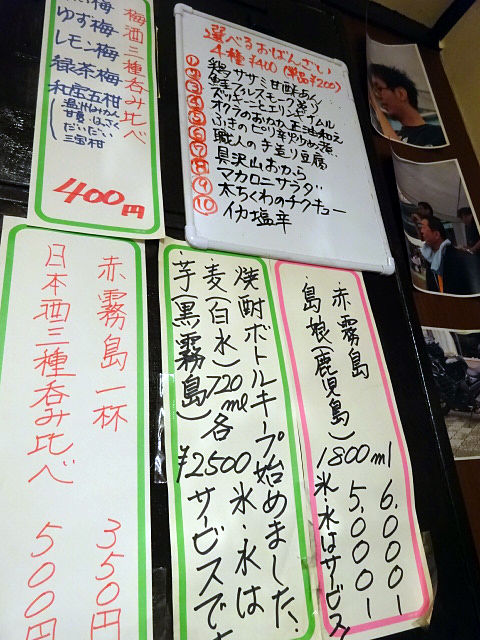 梅酒三種呑み比べ
ゆず梅
レモン梅
緑茶梅
和歌五柑
400円
選べるおばんざい
4種¥400(単品¥200)
① 鶏ササミ甘酢あん
② 鮭フレスモーク茶
③ ズッキーニとエリンギナムル
④ オクラのおかか正油和え
⑤ ふきのピリ辛炒め煮
⑥ 職人の手造り豆腐
⑦ 具沢山おから
⑧ マカロニサラダ
⑨ 太ちくわのチクキュー
⑩ イカ塩辛
赤霧島 1800ml 6.000
島娘(鹿児島) 5.000
氷・水はサービス
焼酎ボトルキープ始めました、
麦(白水)720ml各
芋(黒霧島) ¥2500 氷・水は
サービスです
赤霧島一杯 350円
日本酒三種呑み比べ 500円